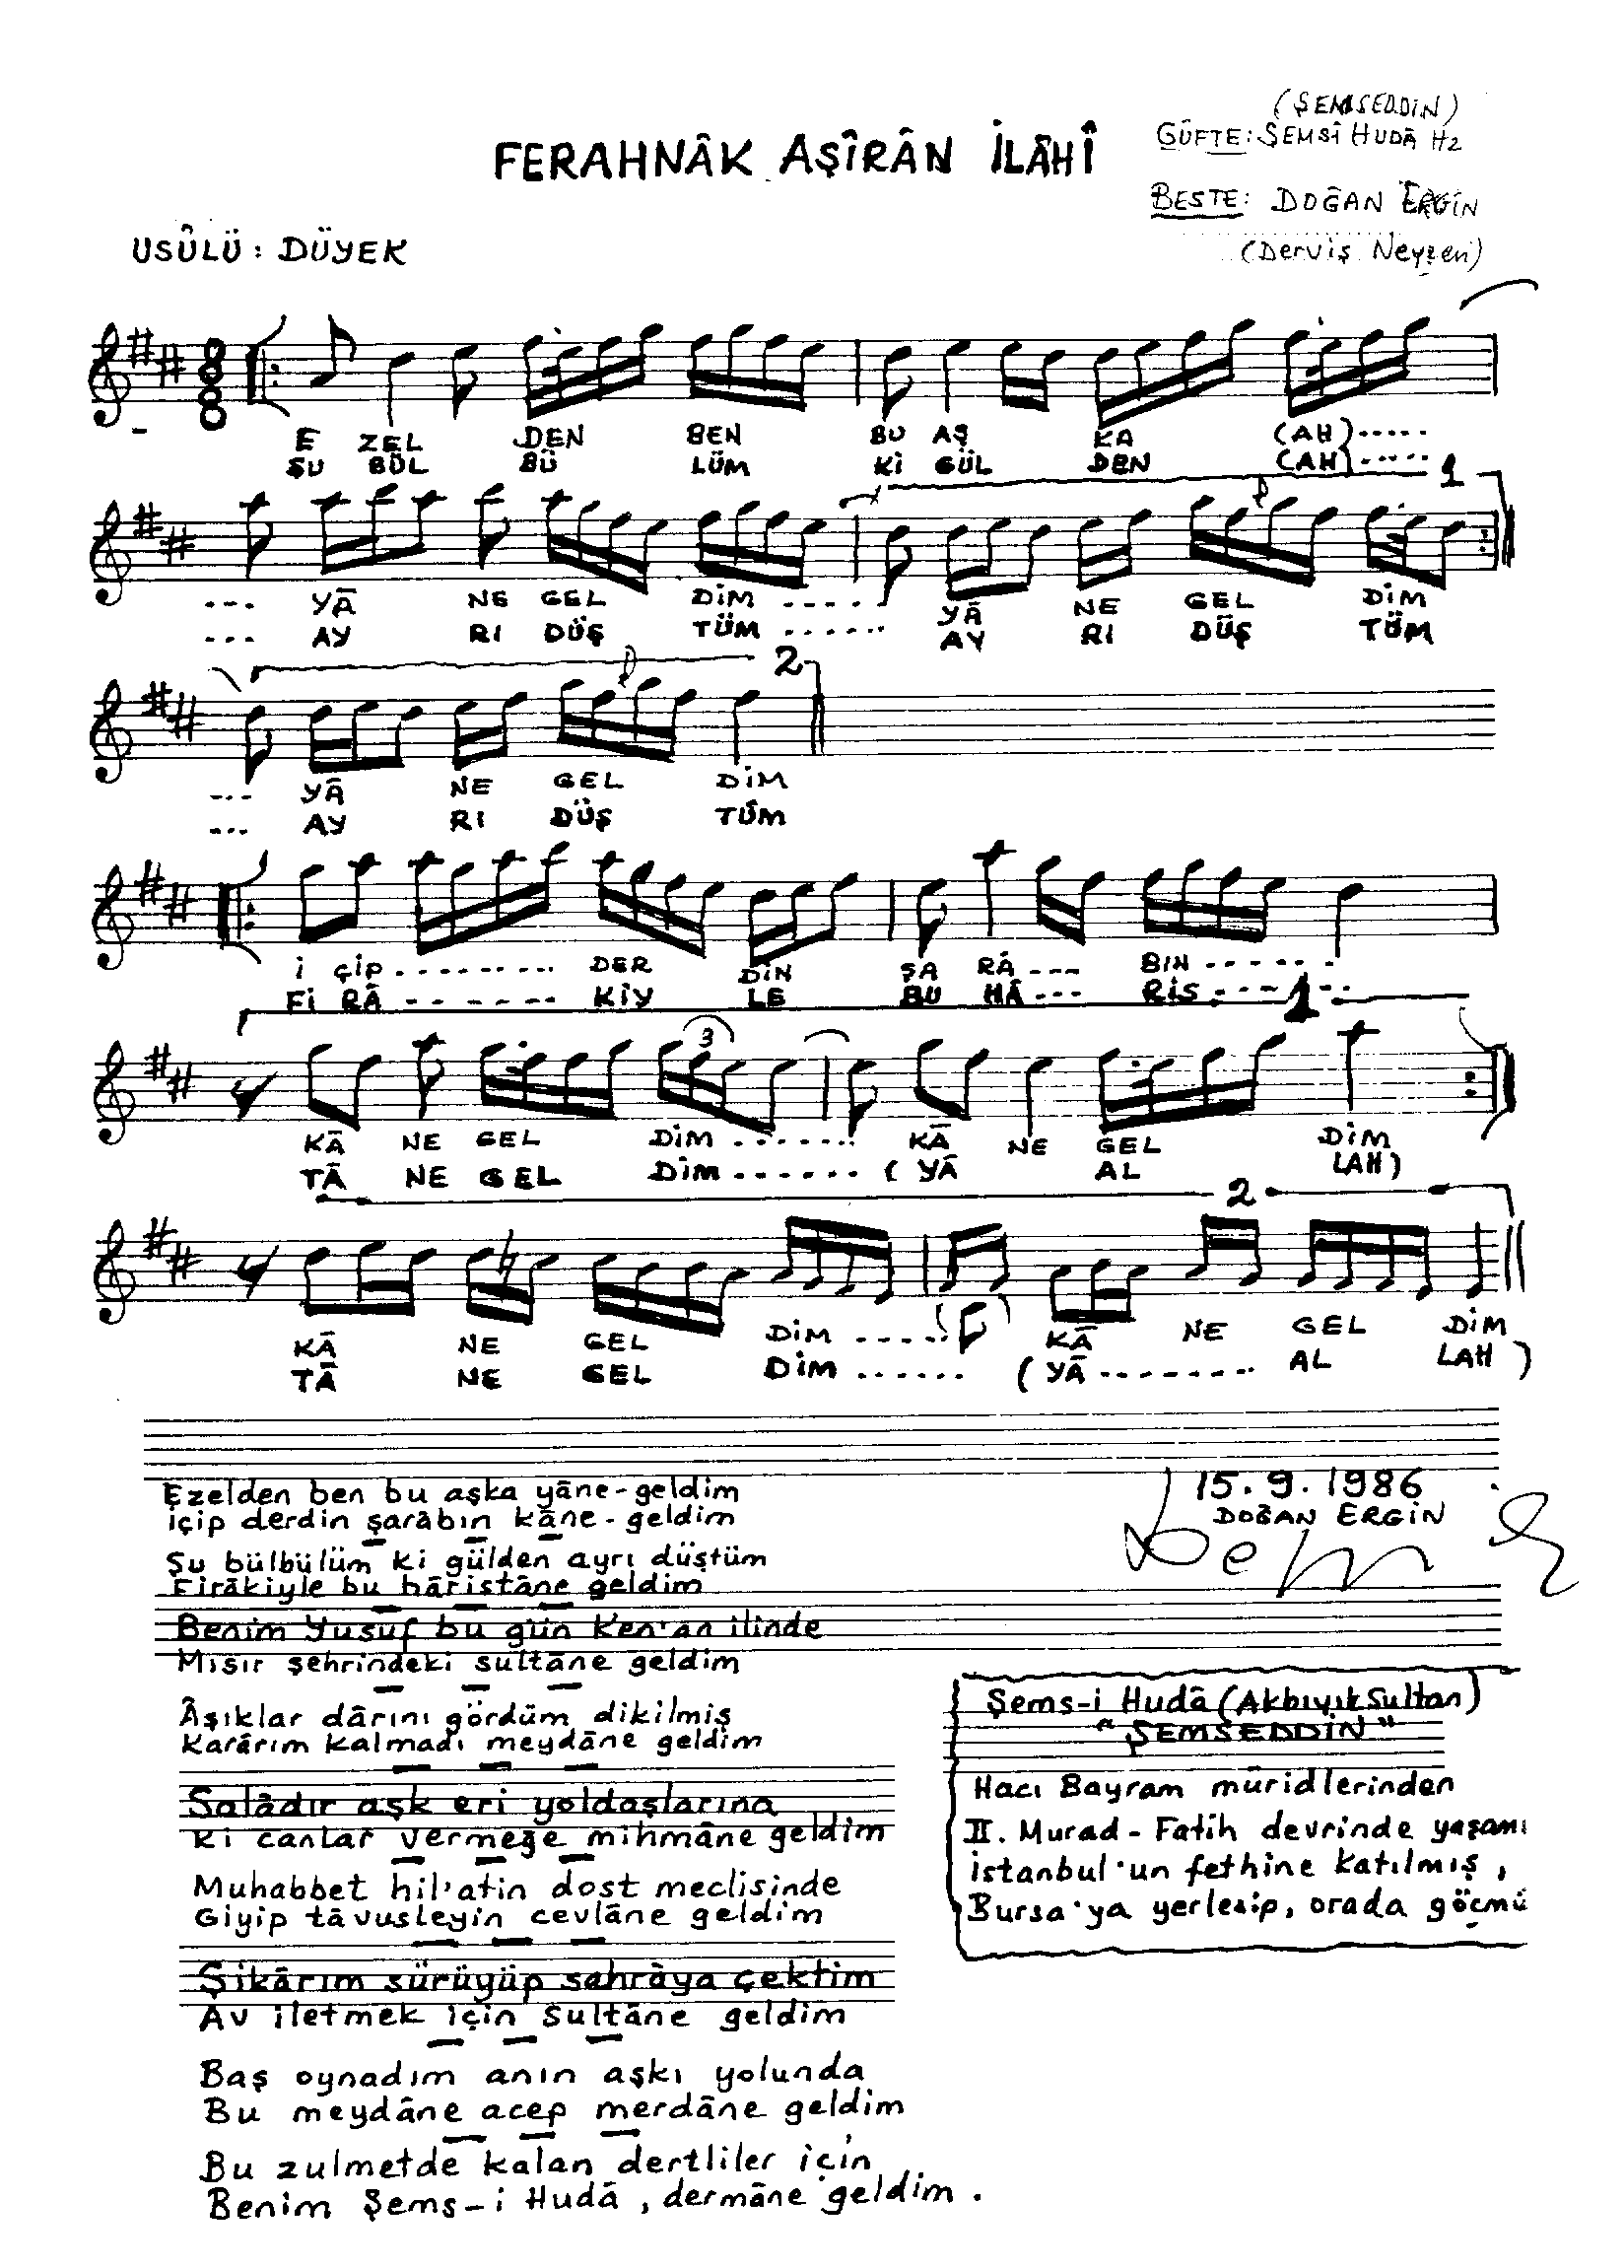 (ŞEMSEDDİN)
FERAHNÂK AŞÎRÂN İLÂHÎ
GÜFTE: ŞEMSİ HUDÂ HZ
BESTE: DOĞAN ERGİN
USÛLÜ: DÜYEK
(Derviş Neyzen)
8
8
E ZEL DEN BEN BU AŞ KA (AH).....
ŞU BÜL BÜ LÜM Kİ GÜL DEN (AH).....
1
--- YÂ NE GEL DİM ...... YÂ NE GEL DİM
--- AY RI DÜŞ TÜM ...... AY RI DÜŞ TÜM
2
--- YÂ NE GEL DİM
--- AY RI DÜŞ TÜM
İ ÇİP......... DER DİN ŞA RÂ --- BIN ......
Fİ RÂ ------- KİY LE BU HÂ --- RİS ------
1
3
KÂ NE GEL DİM ....... KÂ NE GEL DİM
TÂ NE GEL DİM ...... (YÂ AL LAH)
2
KÂ NE GEL DİM ..... KÂ NE GEL DİM
TÂ NE GEL DİM ...... (YÂ ........ AL LAH)
Ezelden ben bu aşka yâne-geldim
içip derdin şarâbın kâne-geldim
Şu bülbülüm ki gülden ayrı düştüm
Firâkiyle bu hâristâne geldim
Benim Yusuf bu gün Ken'an ilinde
Mısır şehrindeki sultâne geldim
Âşıklar dârını gördüm dikilmiş
Karârım kalmadı meydâne geldim
Salâdır aşk eri yoldaşlarına
Ki canlar vermeğe mihmâne geldim
Muhabbet hil'atin dost meclisinde
Giyip tâvusleyin cevlâne geldim
Şikârım sürüyüp sahrâya çektim
Av iletmek için sultâne geldim
Baş oynadım anın aşkı yolunda
Bu meydâne acep merdâne geldim
Bu zulmetde kalan dertliler için
Benim Şems-i Hudâ, dermâne geldim.
15.9.1986
DOĞAN ERGİN
Şems-i Hudâ (Akbıyık Sultan)
"ŞEMSEDDİN"
Hacı Bayram müridlerinden
II. Murad - Fatih devrinde yaşamı
İstanbul'un fethine katılmış,
Bursa'ya yerleşip, orada göçmü